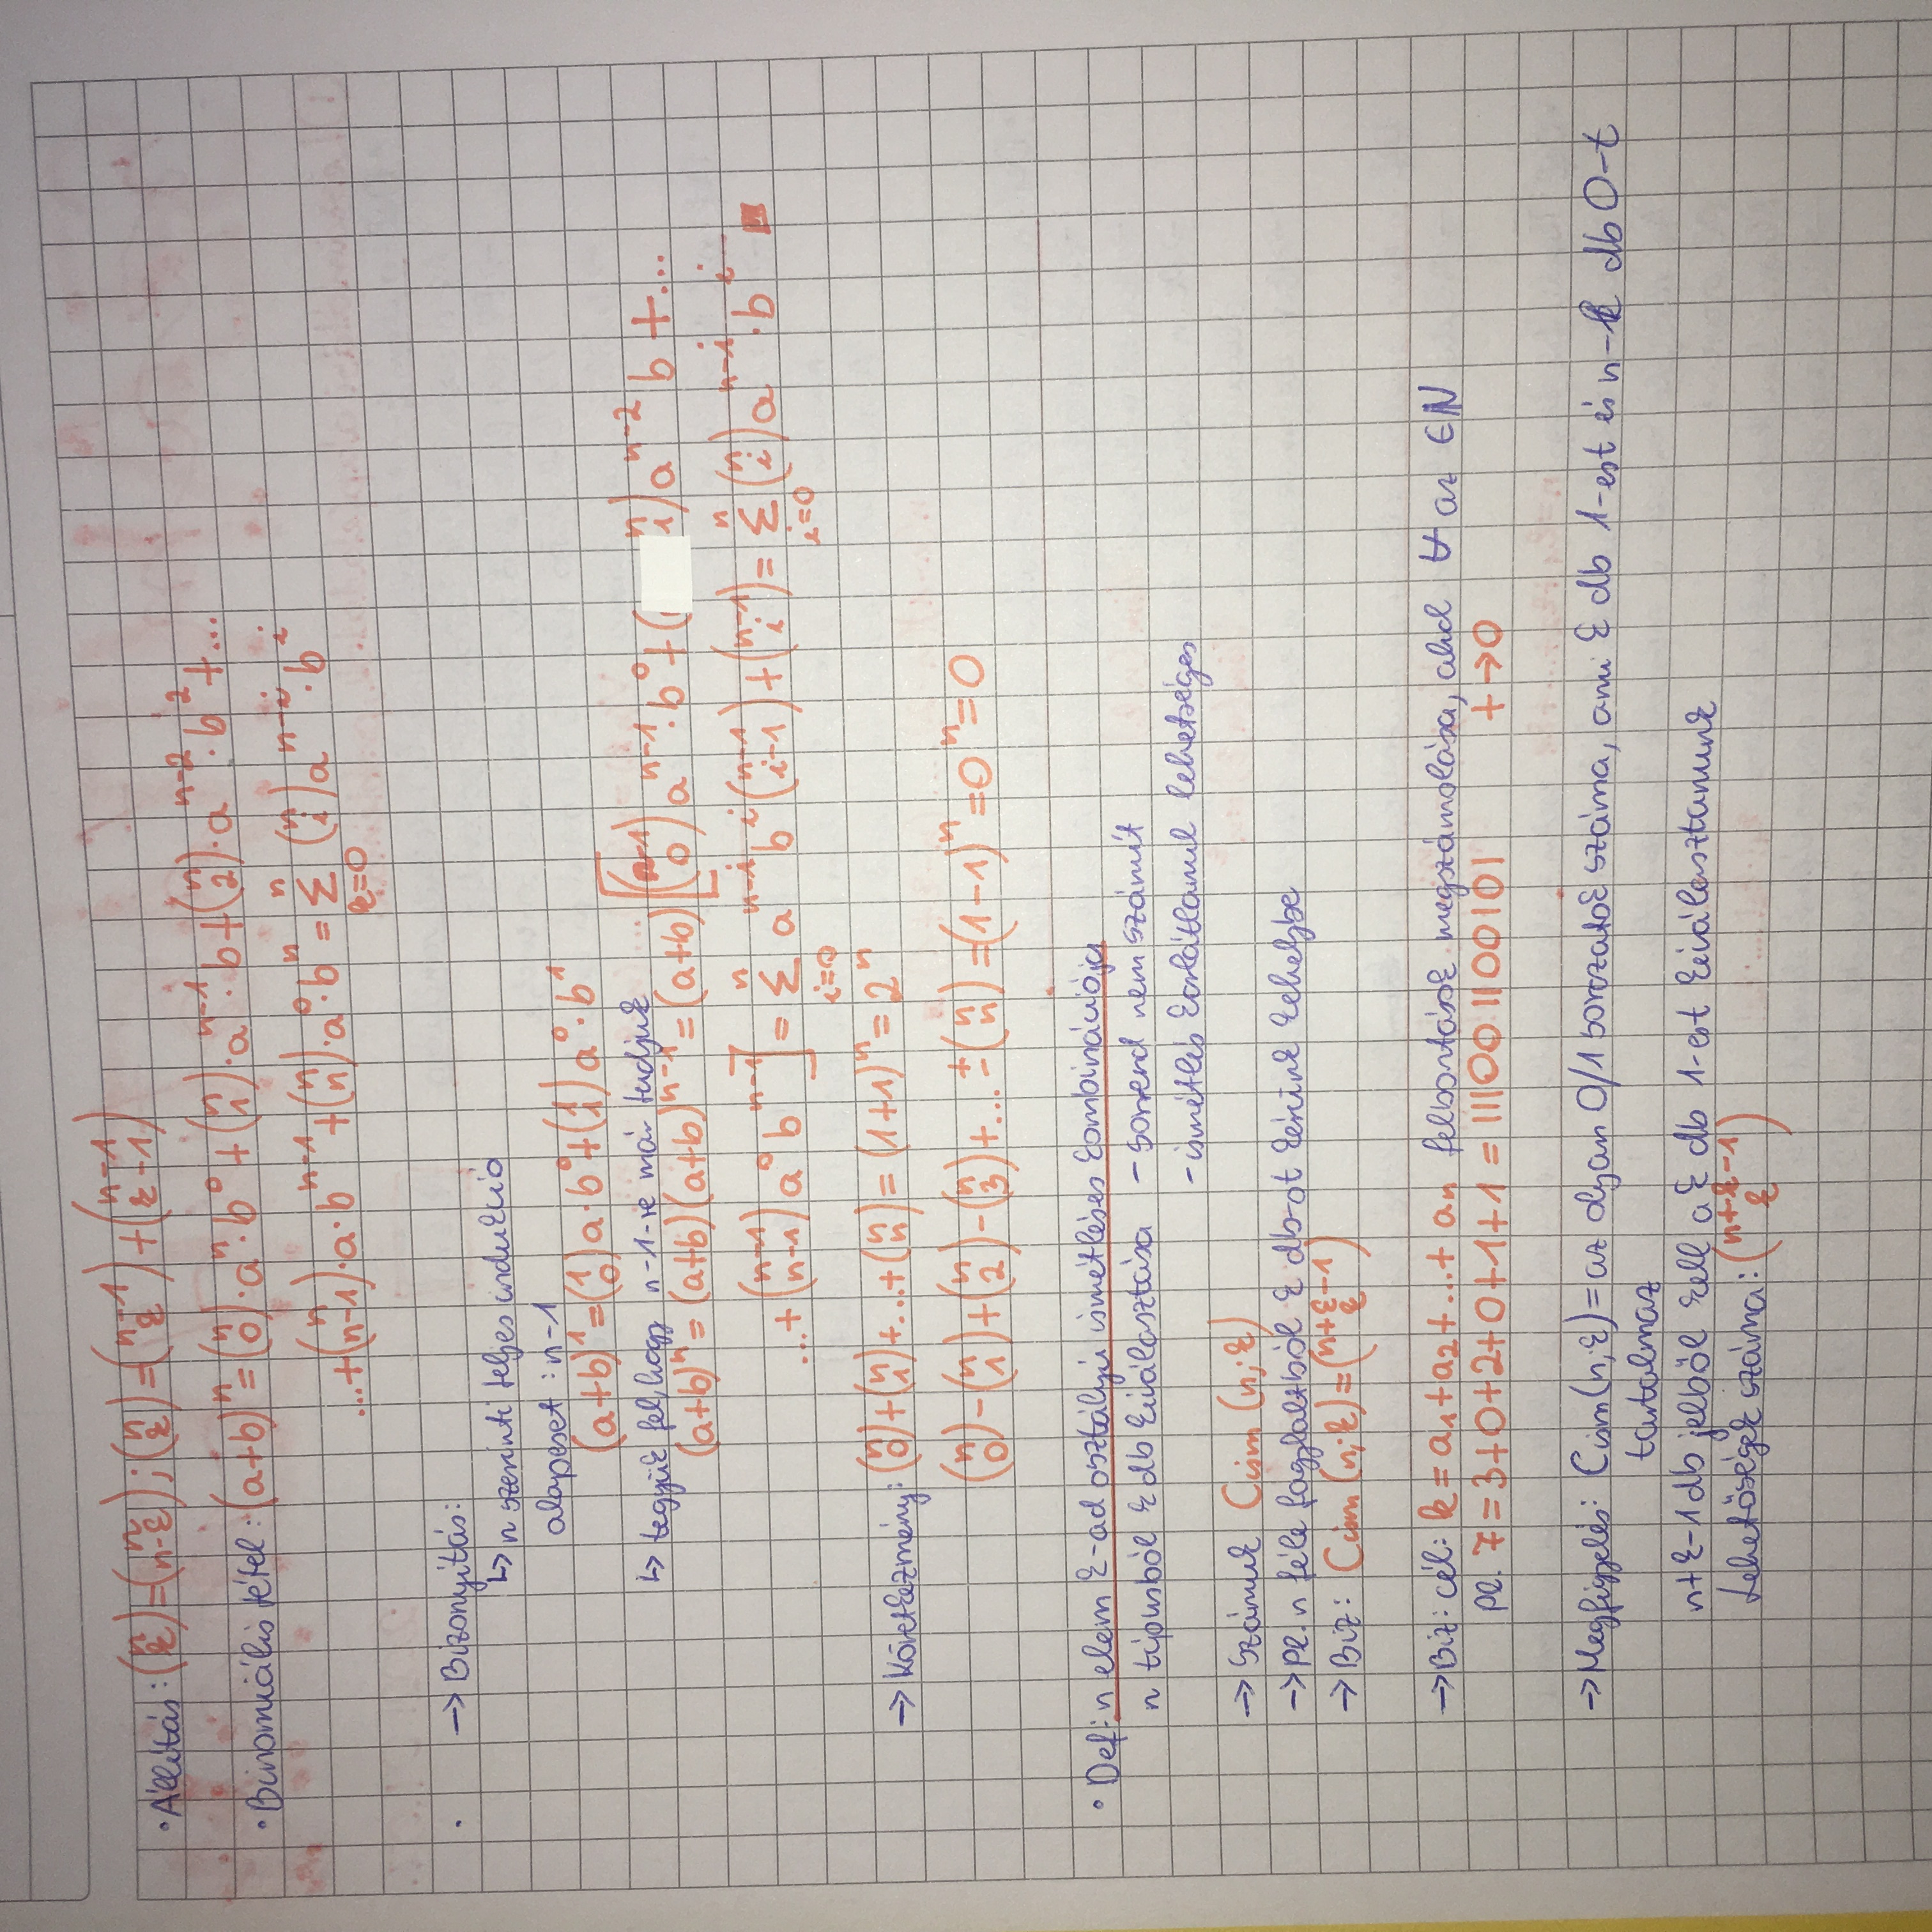 • Állítás: (n k) = (n n-k) ; (n k) = (n-1 k) + (n-1 k-1)
• Binomiális tétel: (a+b)^n = (n 0)·a^n·b^0 + (n 1)·a^(n-1)·b + (n 2)·a^(n-2)·b^2 + ...
... + (n n-1)·a·b^(n-1) + (n n)·a^0·b^n = Σ_(k=0)^n (n i) a^(n-i)·b^i
→ Bizonyítás:
↳ n szerinti teljes indukció
alapeset: n-1
(a+b)^1 = (1 0) a·b^0 + (1 1) a^0·b^1
↳ tegyük fel, hogy n-1-re már tudjuk
(a+b)^n = (a+b)(a+b)^(n-1) = (a+b) [(n-1 0) a^(n-1)·b^0 + (n 1) a^(n-2) b + ...
... + (n-1 n-1) a^0 b^(n-1)] = Σ_(i=0)^n a^(n-i) b^i (n-1 i-1) + (n-1 i) = Σ_(i=0)^n (n i) a^(n-i)·b^i ■
→ Következmény: (n 0) + (n 1) + ... + (n n) = (1+1)^n = 2^n
(n 0) - (n 1) + (n 2) - (n 3) + ... ± (n n) = (1-1)^n = 0^n = 0
• Def: n elem k-ad osztályú ismétléses kombinációja
n típusból k db kiválasztása - sorrend nem számít
- ismétlés korlátlanul lehetséges
→ számuk Cism (n; k)
→ Pl. n féle fagylaltból k db-ot kérünk kehelybe
→ Biz: Cism (n; k) = (n+k-1 k)
→ Biz: cél: k = a1 + a2 + ... + an felbontások megszámolása, ahol ∀ az ∈ N
Pl. 7 = 3+0+2+0+1+1 = 111001100101 + → 0
→ Megfigyelés: Cism (n; k) = az olyan 0/1 sorozatok száma, ami k db 1-est és n-1 db 0-t
tartalmaz
n+k-1 db jelből kell a k db 1-est kiválasztanunk
Lehetőségek száma: (n+k-1 k)